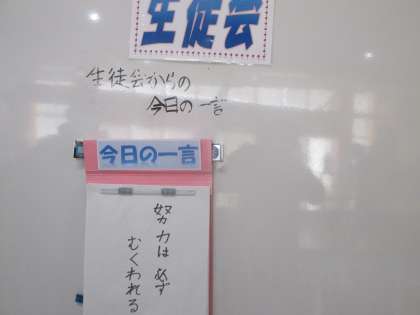 生徒会
生徒会からの
今日の一言
今日の一言
努力は必ず
むくわれる